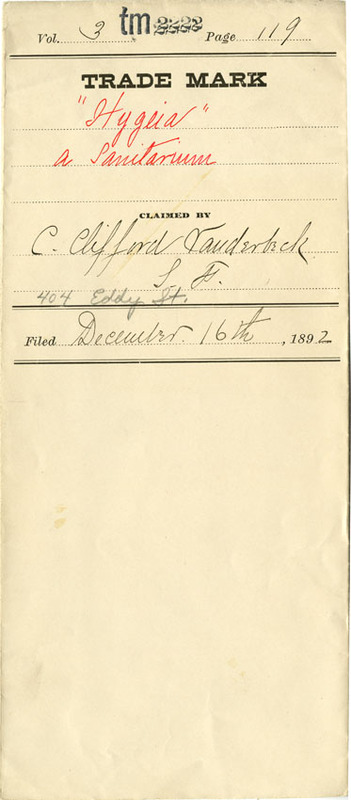 Vol. 3 tm 2222 Page 119
TRADE MARK
"Hygeia"
a Sanitarium
CLAIMED BY
C. Clifford Vanderbeck
S. F.
404 Eddy St.
Filed December 16th, 1892